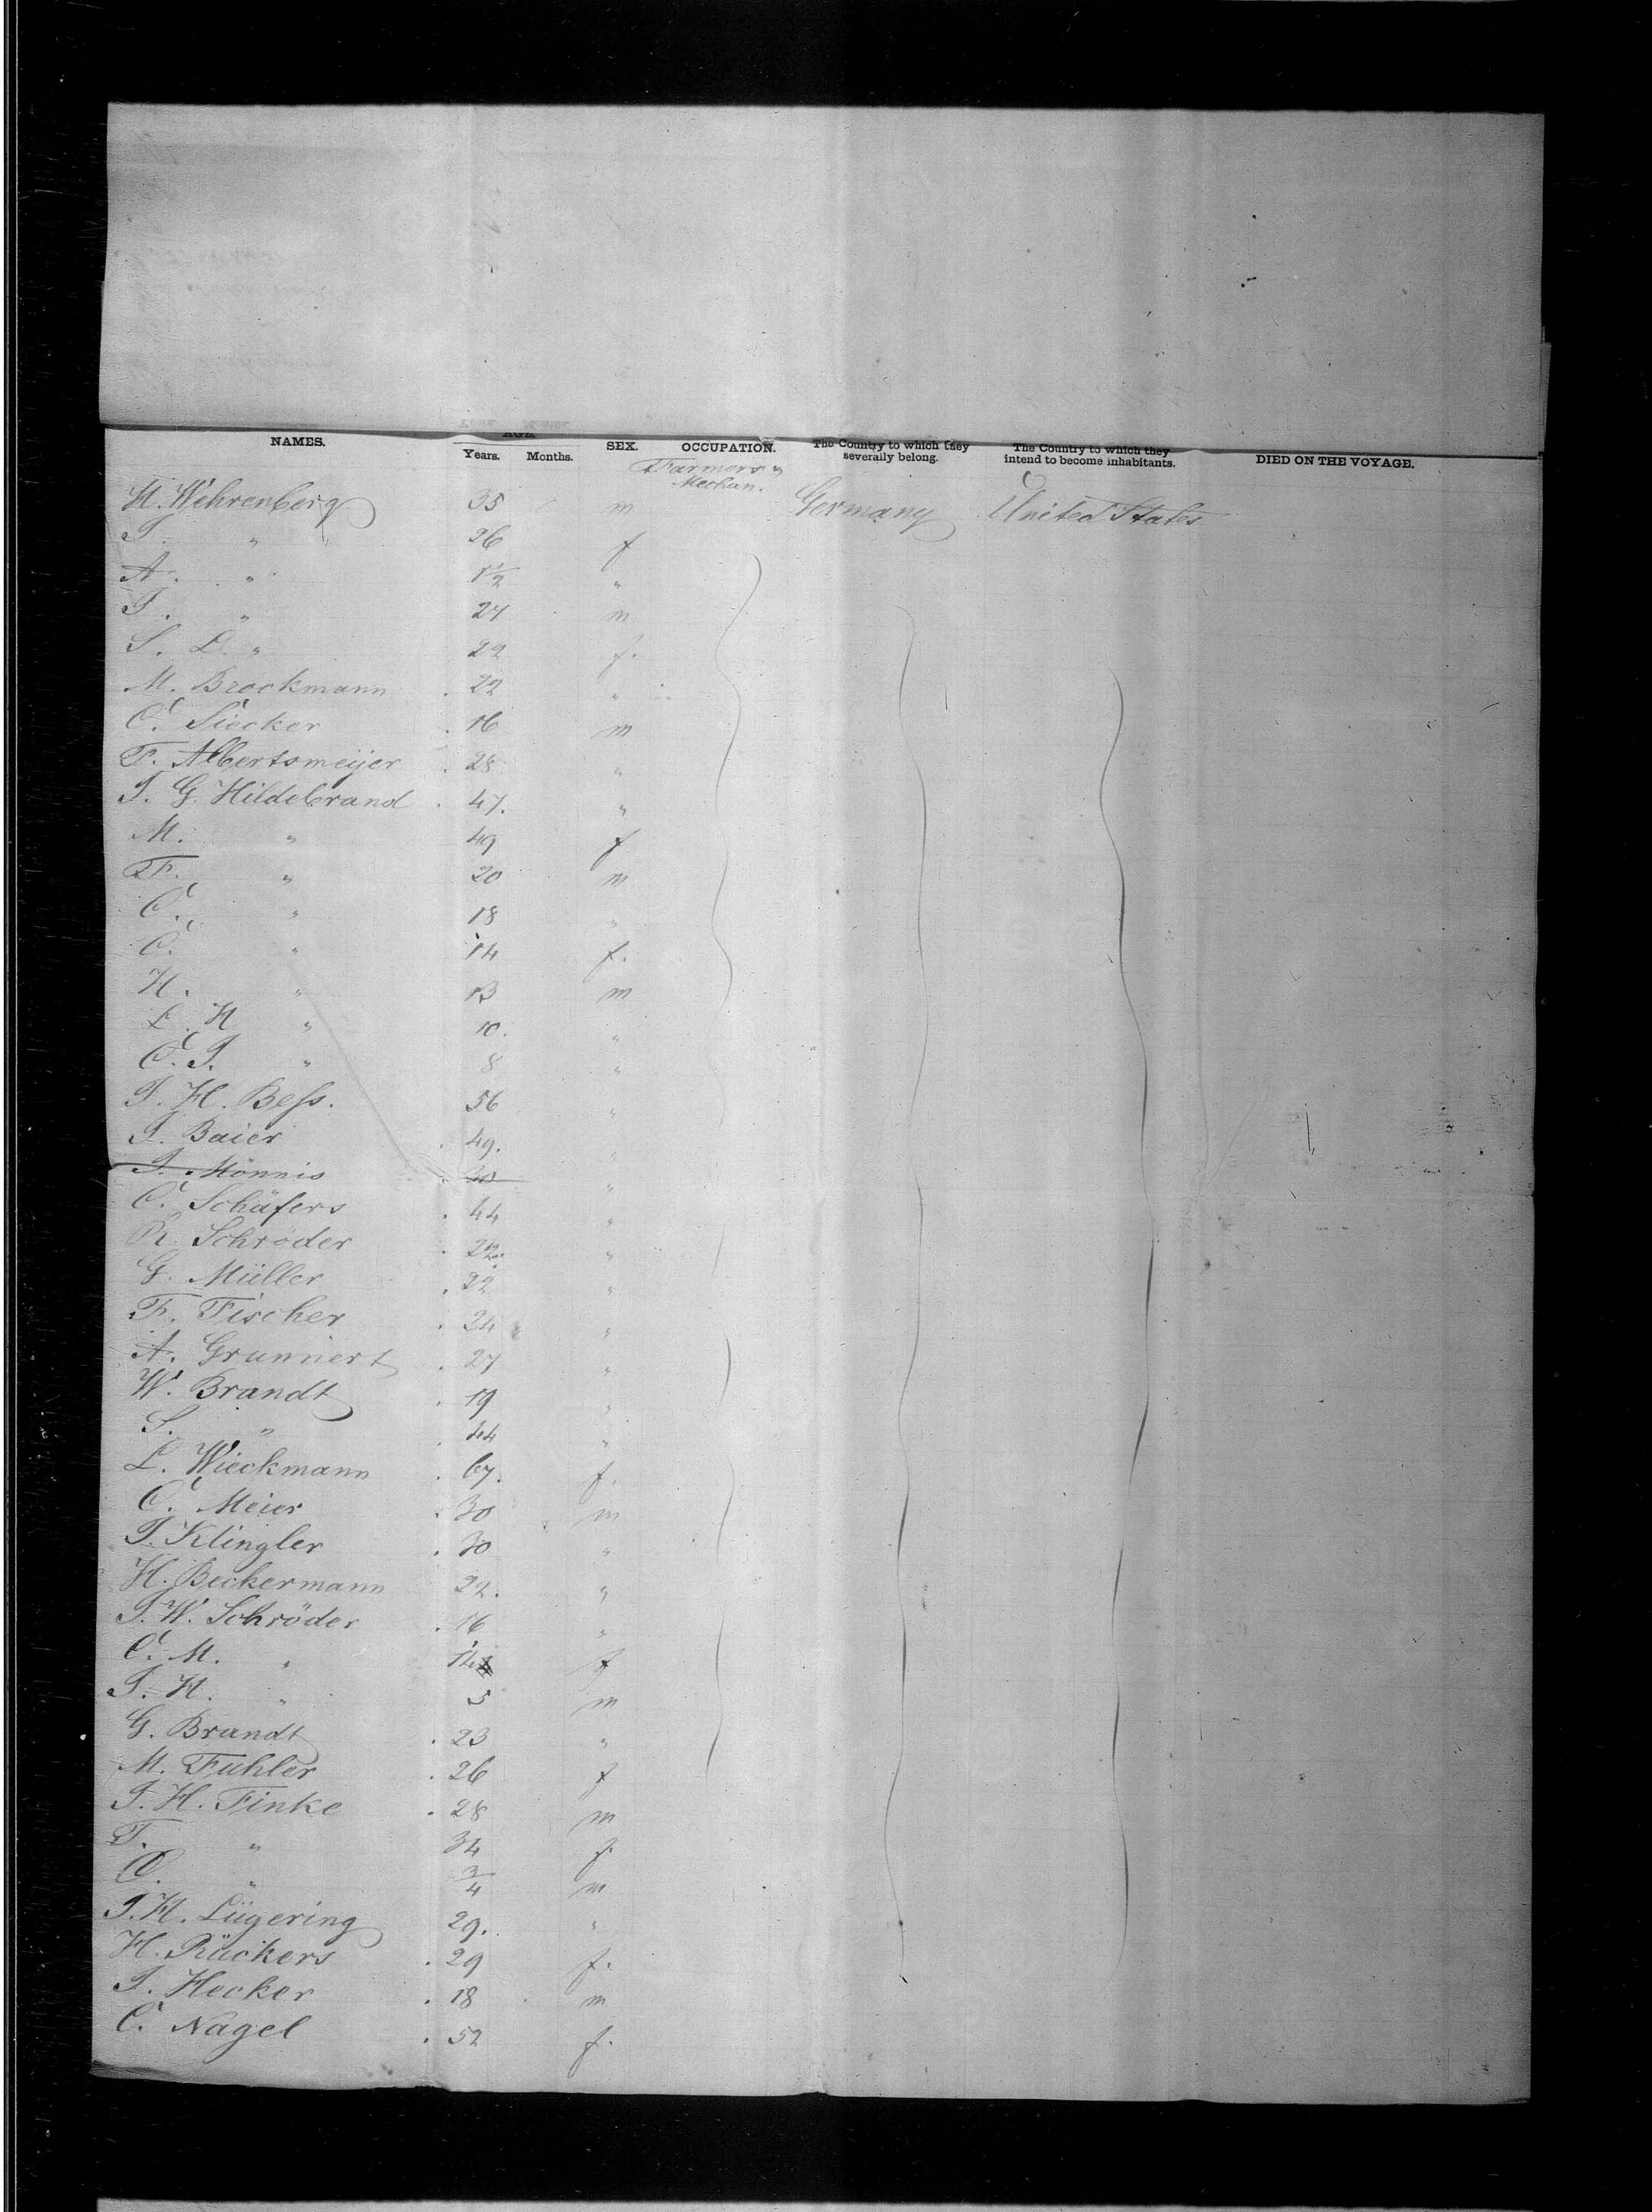 NAMES. AGE. SEX. OCCUPATION. The Country to which they severally belong. The Country to which they intend to become inhabitants. DIED ON THE VOYAGE.
Years. Months.
Farmers "
Mechan.
H. Wehrenberg 35 m Germany United States
J. " 26 f
A. " 1 1/2 "
J. " 27 m
S. L. " 22 f.
M. Brockmann . 22 "
C. Siecker . 16 m
F. Albertsmeijer . 28 "
J. G. Hildebrand . 47. "
M. " 49 f
F. " 20 m
C. " 18 "
C. " 14 f.
H. " 13 m
L. H " 10. "
C. J. " 8 "
J. H. Beſs. 56 "
J. Baier . 49. "
J. Mönnis . 20 "
C. Schäfers . 44 "
R. Schröder . 22. "
G. Müller . 22 "
F. Fischer . 24 "
A. Grunnert . 27 "
W. Brandt . 19 "
S. " . 44 "
L. Wieckmann . 67. f.
C. Meier . 30 m
J. Klingler . 30 "
H. Beckermann 22. "
J. W. Schröder . 16 "
C. M. " 14 f
J. H. " 5 m
G. Brandt . 23 "
M. Fuhler . 26 f
J. H. Finke . 28 m
T. " 34 f.
C. " 3/4 m
J. H. Lügering 29. "
H. Rückers . 29 f.
J. Hecker . 18 m
C. Nagel . 52 f.